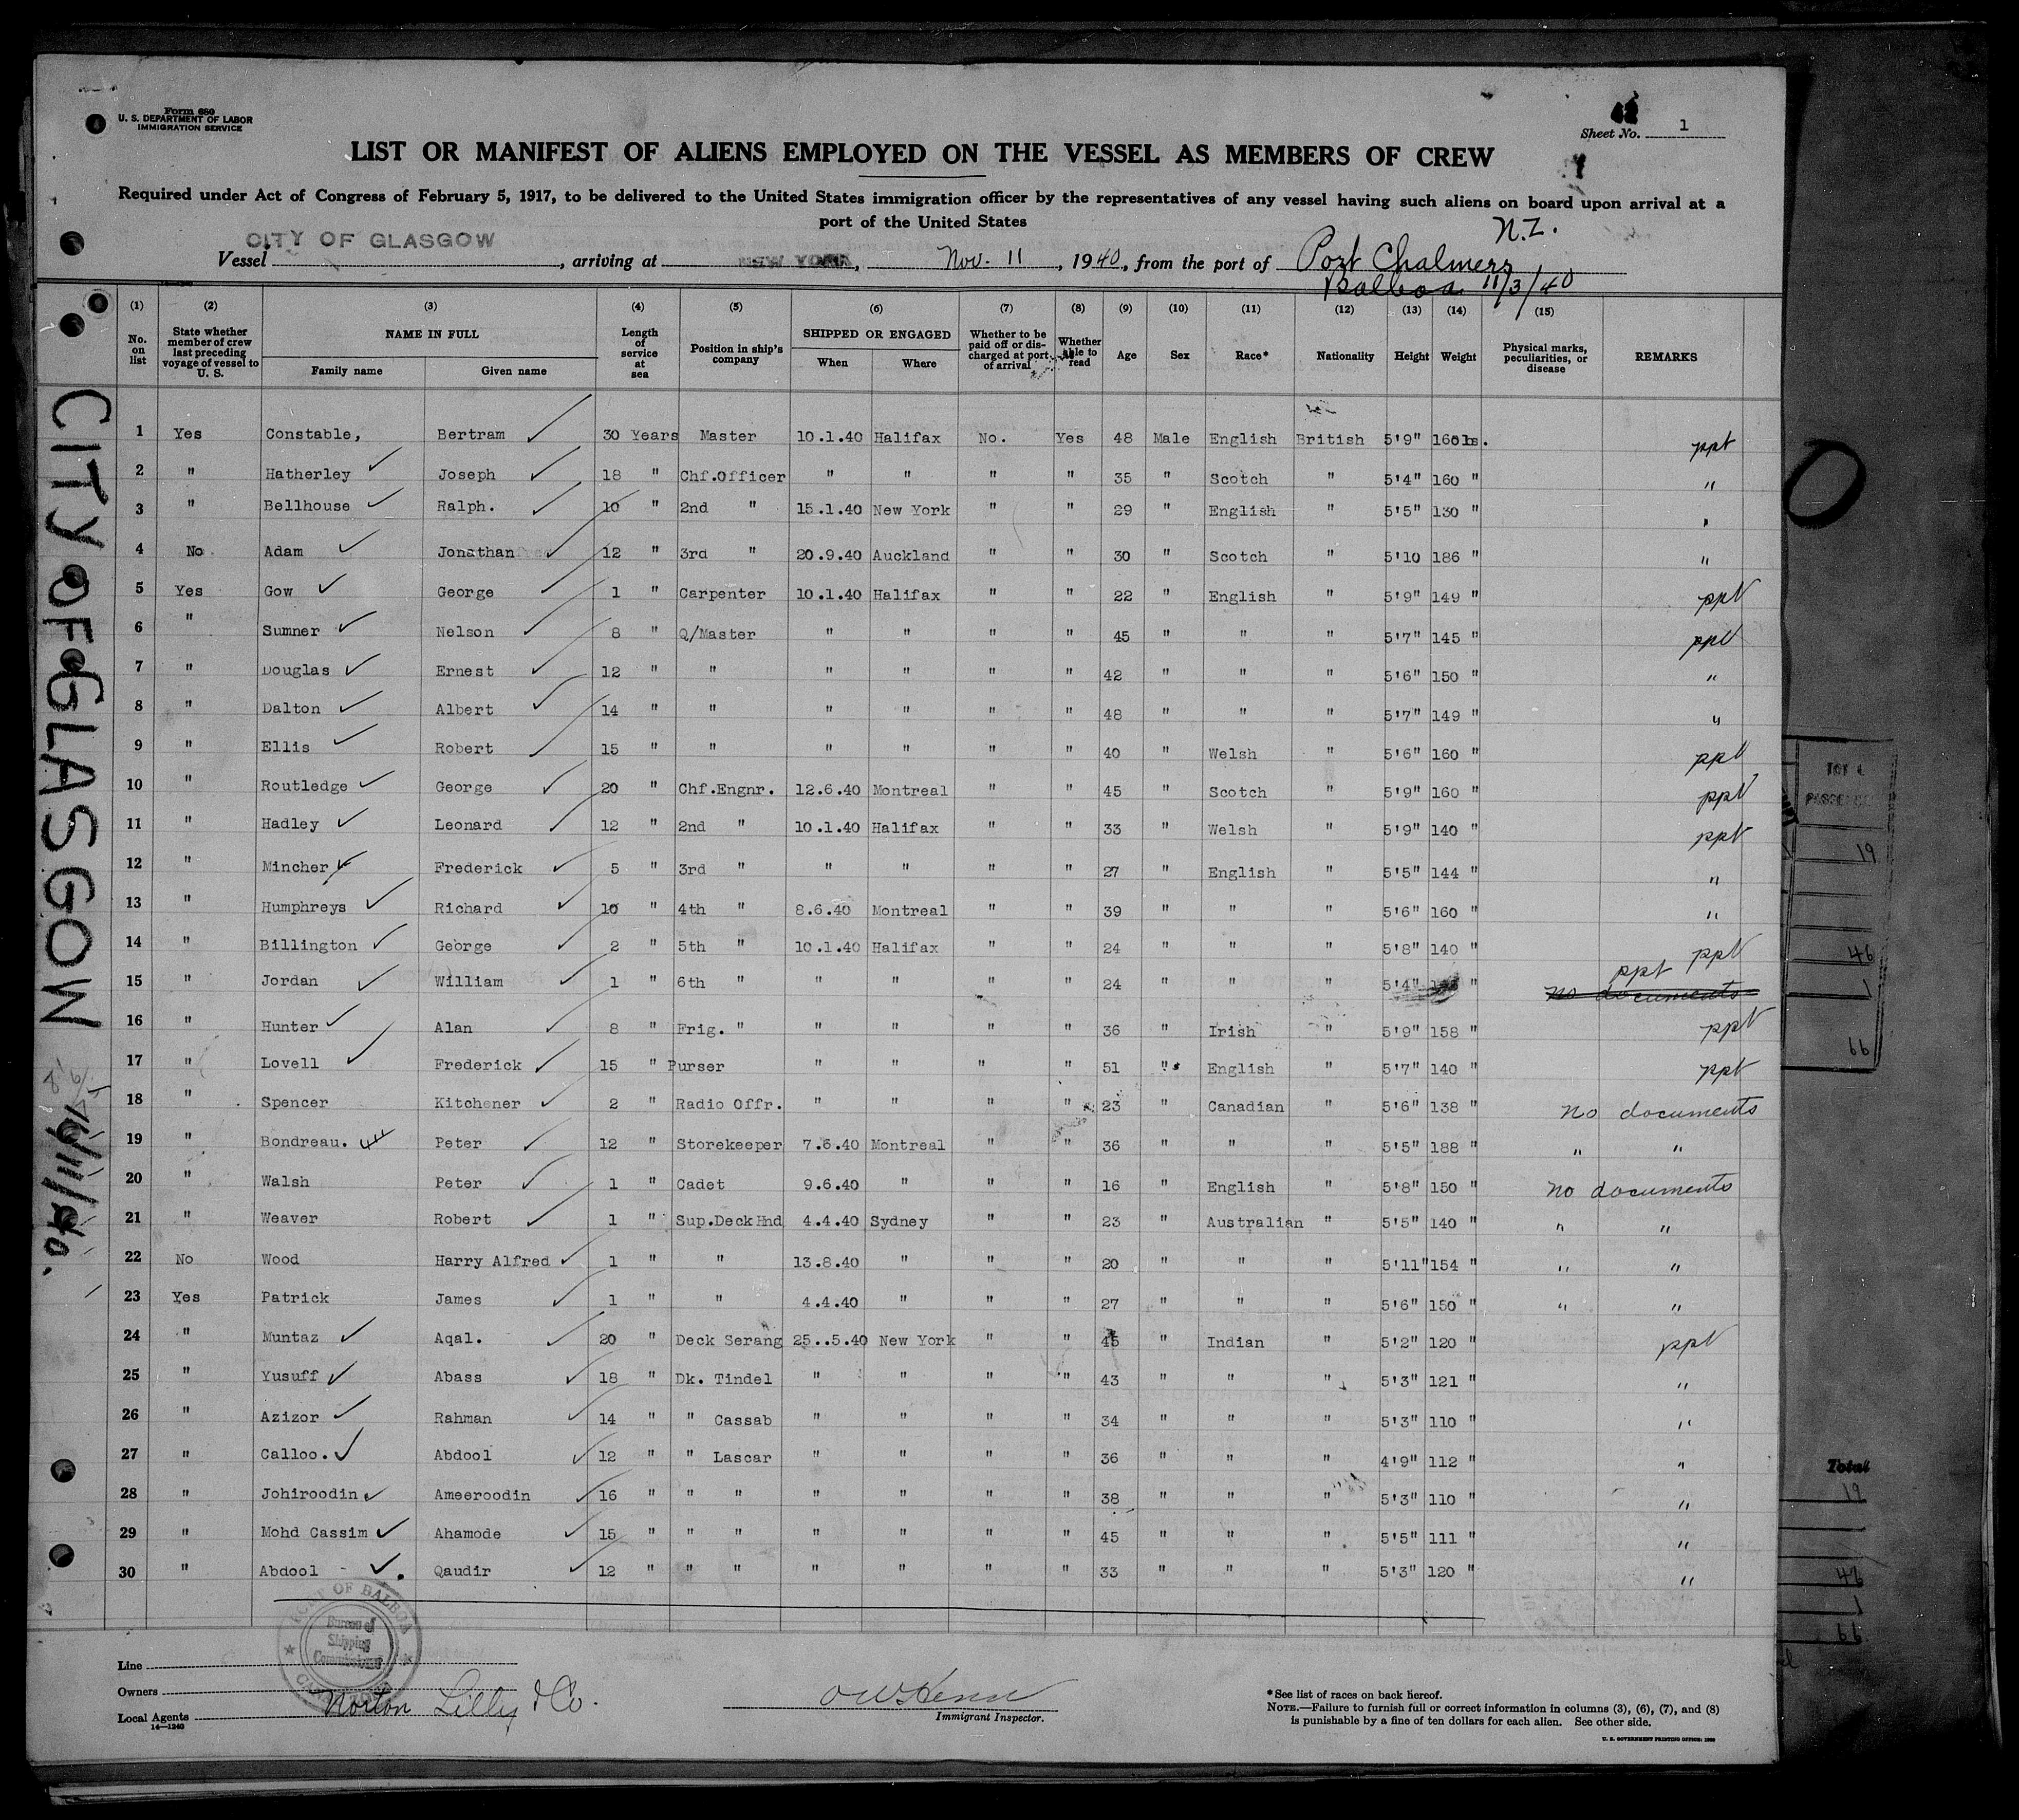 Form 680
U. S. DEPARTMENT OF LABOR
IMMIGRATION SERVICE
Sheet No. 1
LIST OR MANIFEST OF ALIENS EMPLOYED ON THE VESSEL AS MEMBERS OF CREW
Required under Act of Congress of February 5, 1917, to be delivered to the United States immigration officer by the representatives of any vessel having such aliens on board upon arrival at a
port of the United States
N.Z.
Vessel CITY OF GLASGOW, arriving at NEW YORK, Nov. 11, 1940, from the port of Port Chalmers
Balboa 11/3/40
(1) (2) (3) (4) (5) (6) (7) (8) (9) (10) (11) (12) (13) (14) (15)
No. on list State whether member of crew last preceding voyage of vessel to U. S. NAME IN FULL Family name Given name Length of service at sea Position in ship's company SHIPPED OR ENGAGED When Where Whether to be paid off or discharged at port of arrival Whether able to read Age Sex Race* Nationality Height Weight Physical marks, peculiarities, or disease REMARKS
1 Yes Constable, Bertram 30 Years Master 10.1.40 Halifax No. Yes 48 Male English British 5'9" 160 lbs. ppt
2 " Hatherley Joseph 18 " Chf.Officer " " " " 35 " Scotch " 5'4" 160 " "
3 " Bellhouse Ralph. 10 " 2nd " 15.1.40 New York " " 29 " English " 5'5" 130 " "
4 No Adam Jonathan 12 " 3rd " 20.9.40 Auckland " " 30 " Scotch " 5'10 186 " "
5 Yes Gow George 1 " Carpenter 10.1.40 Halifax " " 22 " English " 5'9" 149 " ppt
6 " Sumner Nelson 8 " Q/Master " " " " 45 " " " 5'7" 145 " ppt
7 " Douglas Ernest 12 " " " " " " 42 " " " 5'6" 150 " "
8 " Dalton Albert 14 " " " " " " 48 " " " 5'7" 149 " "
9 " Ellis Robert 15 " " " " " " 40 " Welsh " 5'6" 160 " ppt
10 " Routledge George 20 " Chf.Engnr. 12.6.40 Montreal " " 45 " Scotch " 5'9" 160 " ppt
11 " Hadley Leonard 12 " 2nd " 10.1.40 Halifax " " 33 " Welsh " 5'9" 140 " ppt
12 " Mincher Frederick 5 " 3rd " " " " " 27 " English " 5'5" 144 " "
13 " Humphreys Richard 10 " 4th " 8.6.40 Montreal " " 39 " " " 5'6" 160 " "
14 " Billington George 2 " 5th " 10.1.40 Halifax " " 24 " " " 5'8" 140 " ppt
15 " Jordan William 1 " 6th " " " " " 24 " " " 5'4" " no documents ppt
16 " Hunter Alan 8 " Frig. " " " " " 36 " Irish " 5'9" 158 " ppt
17 " Lovell Frederick 15 " Purser " " " " 51 " English " 5'7" 140 " ppt
18 " Spencer Kitchener 2 " Radio Offr. " " " " 23 " Canadian " 5'6" 138 " no documents
19 " Bondreau. Peter 12 " Storekeeper 7.6.40 Montreal " " 36 " " " 5'5" 188 " " "
20 " Walsh Peter 1 " Cadet 9.6.40 " " " 16 " English " 5'8" 150 " no documents
21 " Weaver Robert 1 " Sup.Deck Hnd 4.4.40 Sydney " " 23 " Australian " 5'5" 140 " " "
22 No Wood Harry Alfred 1 " " 13.8.40 " " " 20 " " " 5'11" 154 " " "
23 Yes Patrick James 1 " " 4.4.40 " " " 27 " " " 5'6" 150 " " "
24 " Muntaz Aqal. 20 " Deck Serang 25..5.40 New York " " 45 " Indian " 5'2" 120 " ppt
25 " Yusuff Abass 18 " Dk. Tindel " " " " 43 " " " 5'3" 121 " "
26 " Azizor Rahman 14 " " Cassab " " " " 34 " " " 5'3" 110 " "
27 " Calloo. Abdool 12 " " Lascar " " " " 36 " " " 4'9" 112 " "
28 " Johiroodin Ameeroodin 16 " " " " " " " 38 " " " 5'3" 110 " "
29 " Mohd Cassim Ahamode 15 " " " " " " " 45 " " " 5'5" 111 " "
30 " Abdool Qaudir 12 " " " " " " " 33 " " " 5'3" 120 " "
CITY OF GLASGOW
PORT OF BALBOA
Bureau of
Shipping
Commissioner
Line
Owners
Local Agents Norton Lilly & Co.
14—1240
Immigrant Inspector.
*See list of races on back hereof.
NOTE.—Failure to furnish full or correct information in columns (3), (6), (7), and (8)
is punishable by a fine of ten dollars for each alien. See other side.
U. S. GOVERNMENT PRINTING OFFICE
19
46
1
66
Total
19
46
1
66